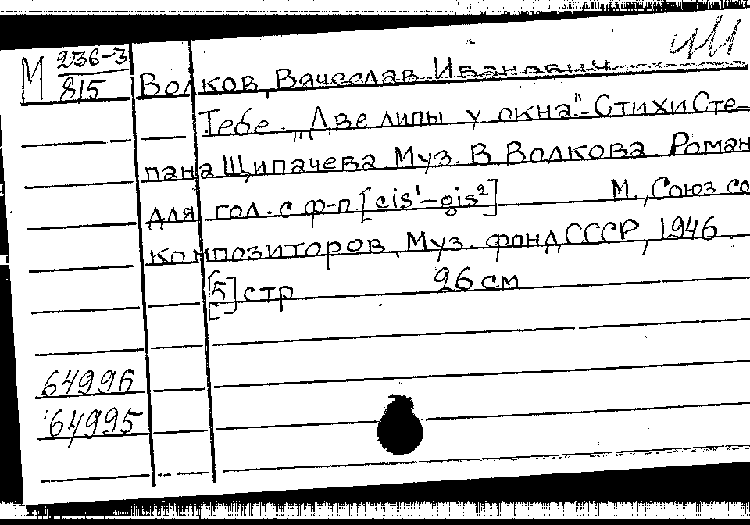 М 236-3
815
Волков, Вячеслав Иванович
Тебе. „Две липы у окна". Стихи Сте-
пана Щипачева Муз. В Волкова Роман
для гол. с ф-п [cis¹-gis²] М., Союз со
композиторов, Муз. фонд СССР, 1946
[5] стр 26 см
64996
64995